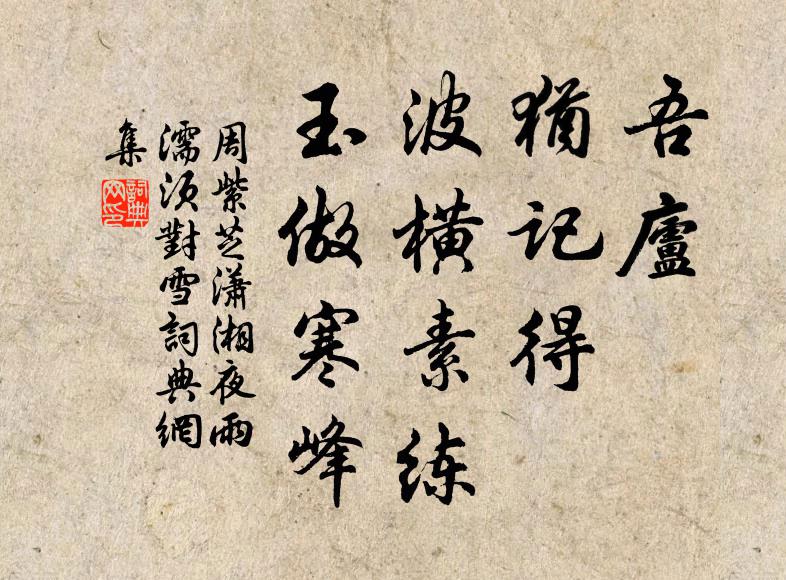 吾廬
猶记得
波横素练
玉做寒峰
周紫芝瀟湘夜雨
濡须對雪詞典網
集
詞典
网印